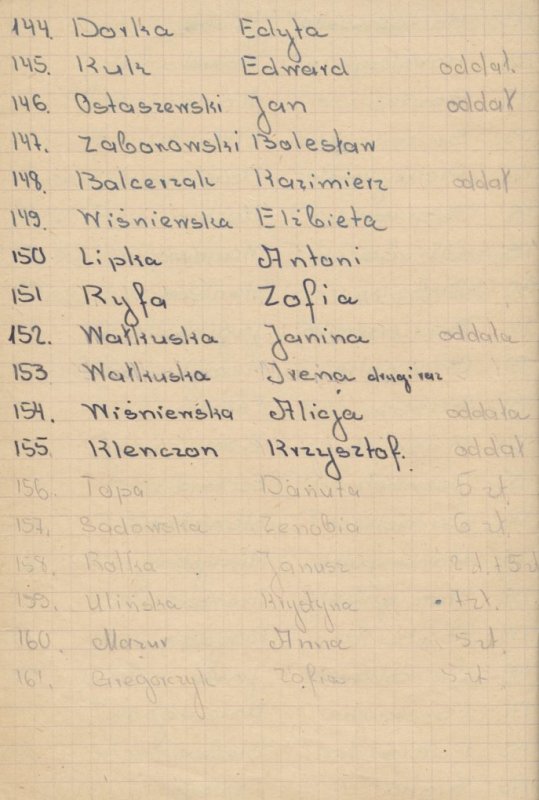 144. Dorka Edyta
145. Kuk Edward oddał.
146. Ostaszewski Jan oddał
147. Zaborowski Bolesław
148. Balcerzak Kazimierz oddał
149. Wiśniewska Elżbieta
150 Lipka Antoni
151 Ryfa Zofia
152. Wałkuska Janina oddała
153 Wałkuska Irena drugi raz
154. Wiśniewska Alicja oddała
155 Klenczon Krzysztof. oddał
156. Topa Danuta 5 zł.
157. Sadowska Zenobia 6 zł.
158. Rolka Janusz 2 zł. + 5 zł
159. Ulińska Krystyna 7 zł.
160. Mazur Anna 5 zł.
161. Gregorczyk Zofia 5 zł.